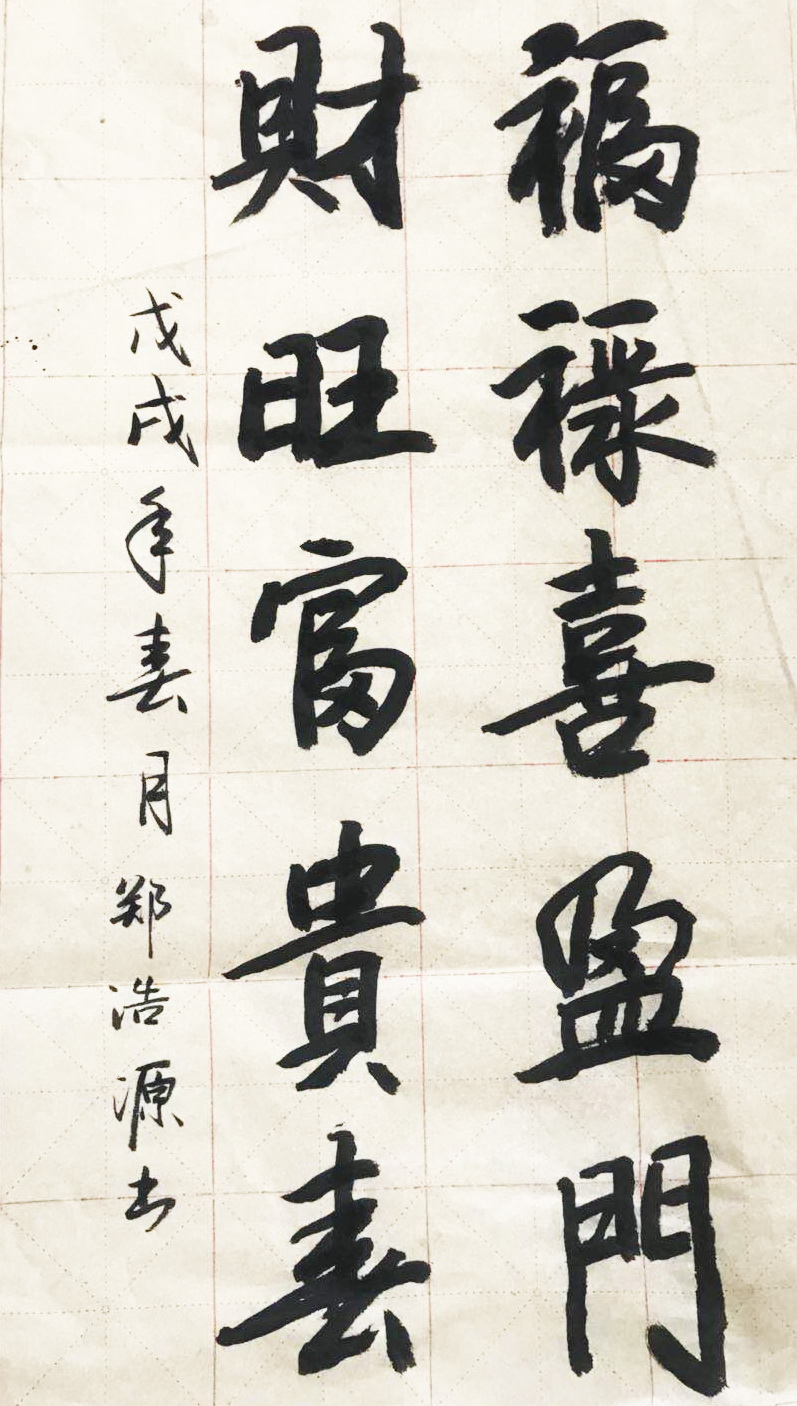 福祿喜盈門
財旺富貴春
戊戌年春月郑浩源书